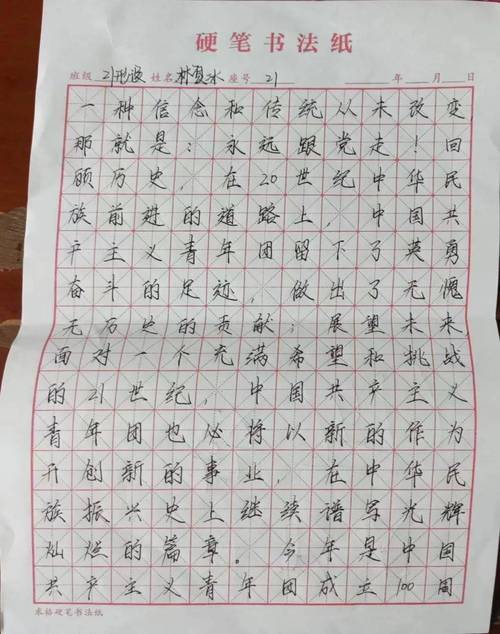 硬笔书法纸
班级 姓名 林 水 座号 21 年 月 日
一种信念和传统从未改变
那就是：永远跟党走！回
顾历史，在20世纪中华民
族前进的道路上，中国共
产主义青年团留下了英勇
奋斗的足迹，做出了无愧
无历史的贡献；展望未来，
面对一个充满希望和挑战
的21世纪，中国共产主义
青年团也必将以新的作为
开创新的事业，在中华民
族振兴史上继续谱写光辉
灿烂的篇章。今年是中国
共产主义青年团成立100周
米格硬笔书法纸